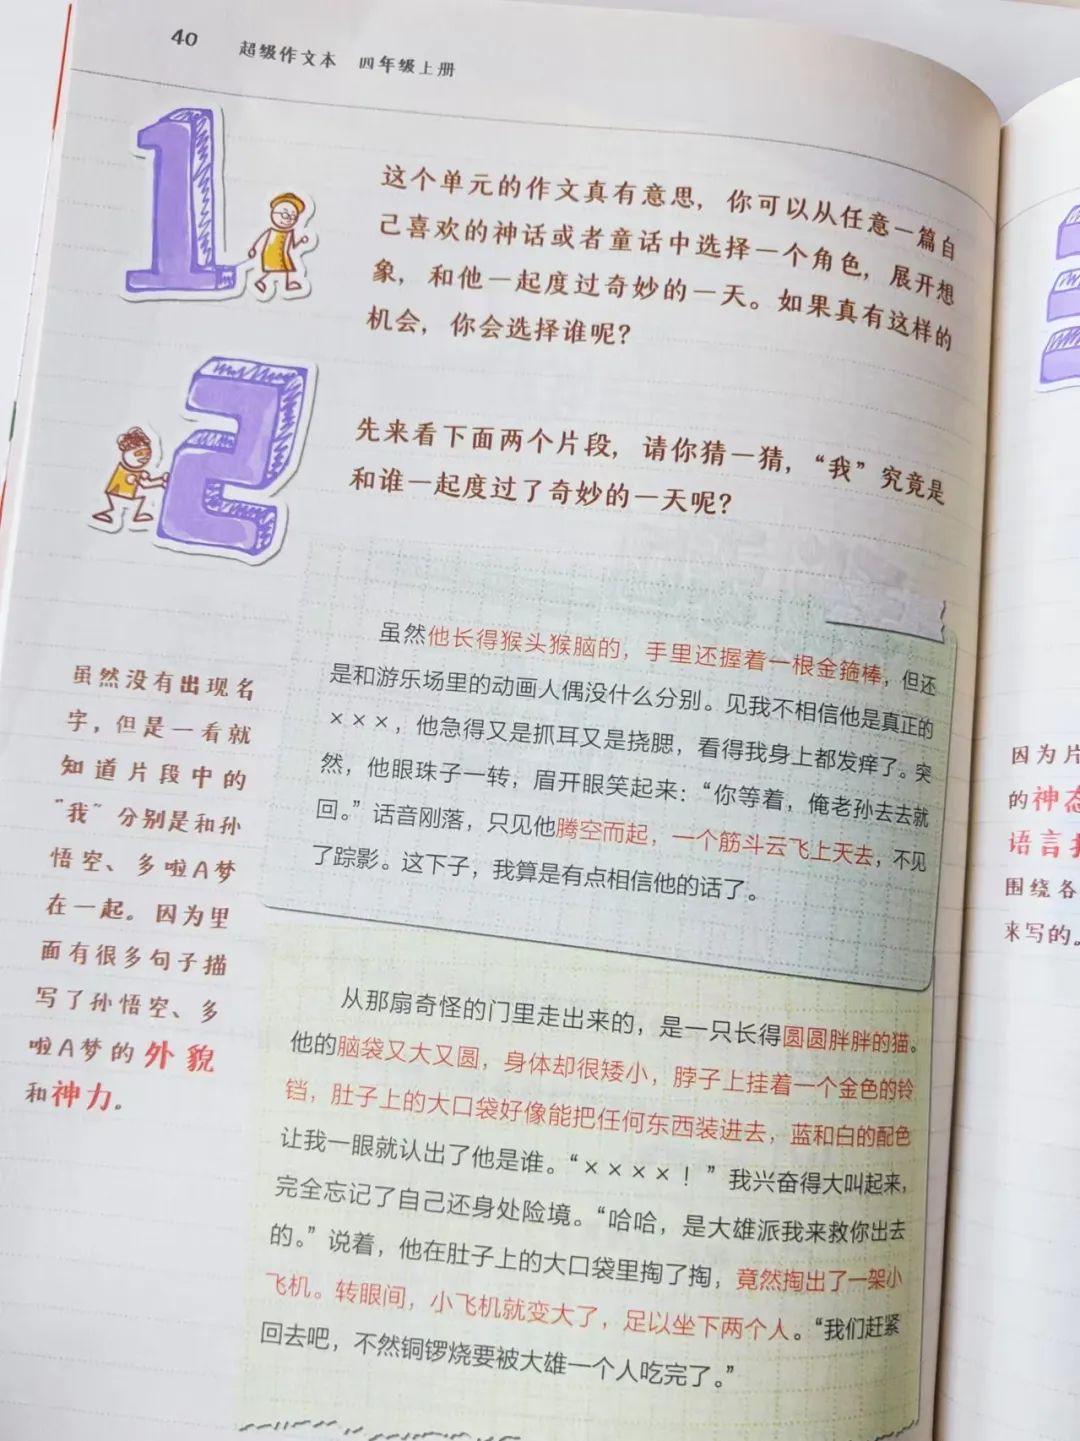 40 超级作文本 四年级上册
这个单元的作文真有意思，你可以从任意一篇自
己喜欢的神话或者童话中选择一个角色，展开想
象，和他一起度过奇妙的一天。如果真有这样的
机会，你会选择谁呢？
先来看下面两个片段，请你猜一猜，“我”究竟是
和谁一起度过了奇妙的一天呢？
虽然他长得猴头猴脑的，手里还握着一根金箍棒，但还
是和游乐场里的动画人偶没什么分别。见我不相信他是真正的
×××，他急得又是抓耳又是挠腮，看得我身上都发痒了。突
然，他眼珠子一转，眉开眼笑起来：“你等着，俺老孙去去就
回。”话音刚落，只见他腾空而起，一个筋斗云飞上天去，不见
了踪影。这下子，我算是有点相信他的话了。
虽然没有出现名
字，但是一看就
知道片段中的
“我”分别是和孙
悟空、多啦A梦
在一起。因为里
面有很多句子描
写了孙悟空、多
啦A梦的外貌
和神力。
从那扇奇怪的门里走出来的，是一只长得圆圆胖胖的猫。
他的脑袋又大又圆，身体却很矮小，脖子上挂着一个金色的铃
铛，肚子上的大口袋好像能把任何东西装进去，蓝和白的配色
让我一眼就认出了他是谁。“××××！”我兴奋得大叫起来，
完全忘记了自己还身处险境。“哈哈，是大雄派我来救你出去
的。”说着，他在肚子上的大口袋里掏了掏，竟然掏出了一架小
飞机。转眼间，小飞机就变大了，足以坐下两个人。“我们赶紧
回去吧，不然铜锣烧要被大雄一个人吃完了。”
因为片
的神态
语言
围绕各
来写的。